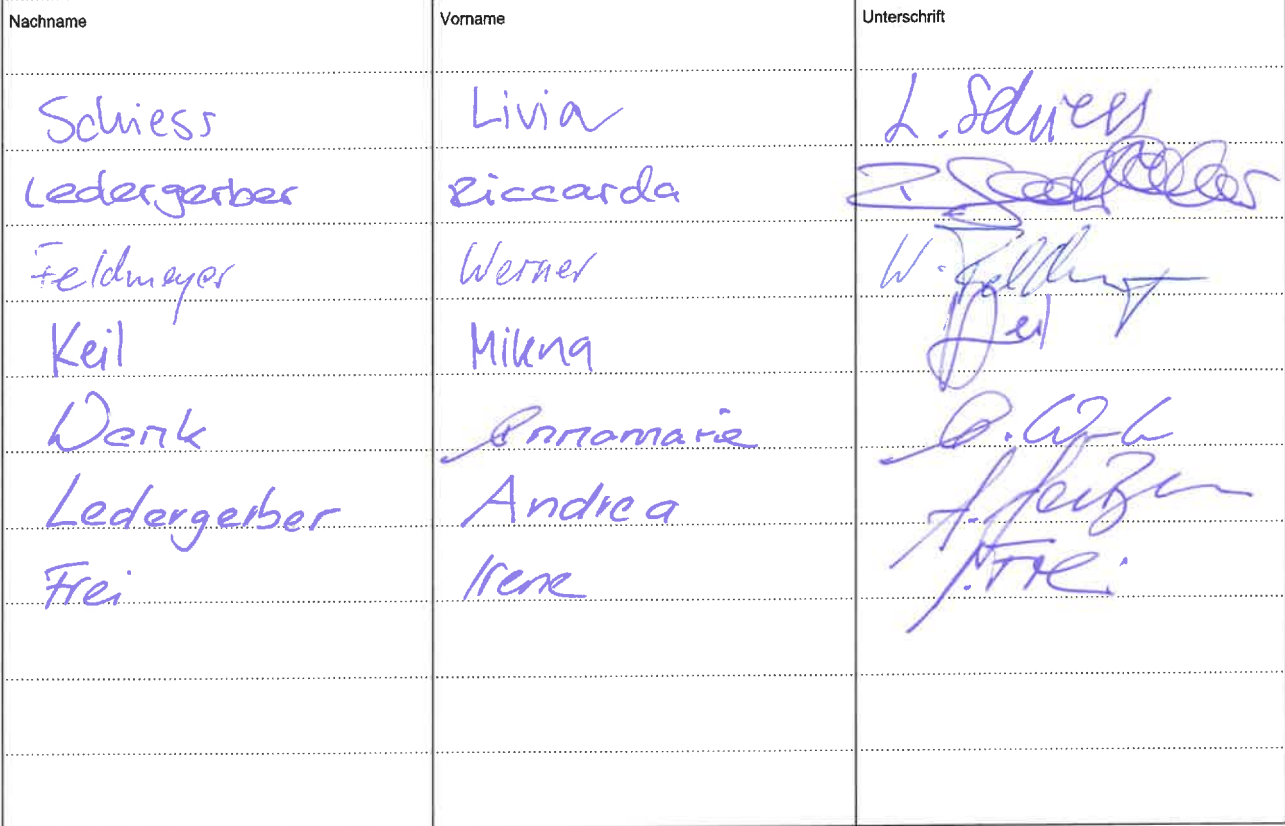 Nachname Vorname Unterschrift
Schiess Livia L. Schiess
Ledergerber Riccarda
Feldmeyer Werner W. Feldm
Keil Milena Keil
Wenk Annamarie
Ledergerber Andrea
Frei Irene I. Frei